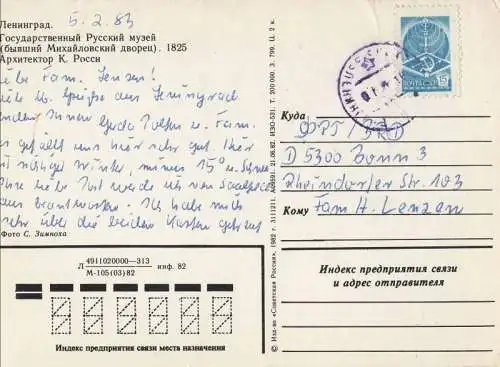 Ленинград. 5.2.83
Государственный Русский музей
(бывший Михайловский дворец). 1825
Архитектор К. Росси
Liebe Fam. Lenzen!
Liebe Grüße aus Leningrad
senden Ihnen Gerda u. Fam.
Es gefällt uns hier sehr gut. Hier
ist richtiger Winter, minus 15° u. Schnee
Ihre liebe Post werde ich von Saalfeld
aus beantworten. Ich habe mich
sehr über die beiden Karten gefreut
Фото С. Зимноха
Л 4911020000—313
М-105(03)82 инф. 82
Индекс предприятия связи места назначения
© Изд-во «Советская Россия», 1982 г. 21.06.82. ИЗО-531. Т. 200 000. З. 799. Ц. 2 к.
15
Куда
D 5300 Bonn 3
Rheindorfer Str. 103
Кому Fam. H. Lenzen
Индекс предприятия связи
и адрес отправителя